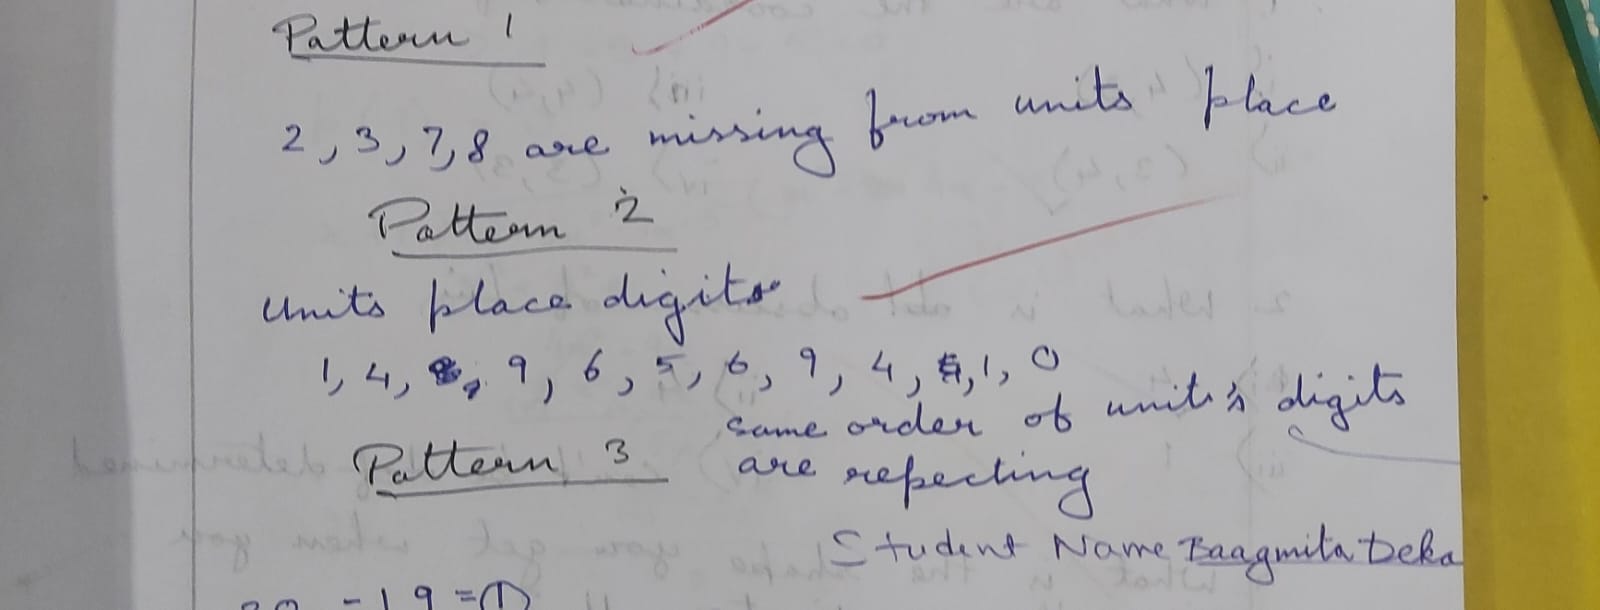 Pattern 1
2, 3, 7, 8 are missing from units place
Pattern 2
Units place digits
1, 4, 9, 6, 5, 6, 9, 4, 1, 0
same order of unit's digits
are repecting
Pattern 3
Student Name Baagmita Deka
- 19 = 1